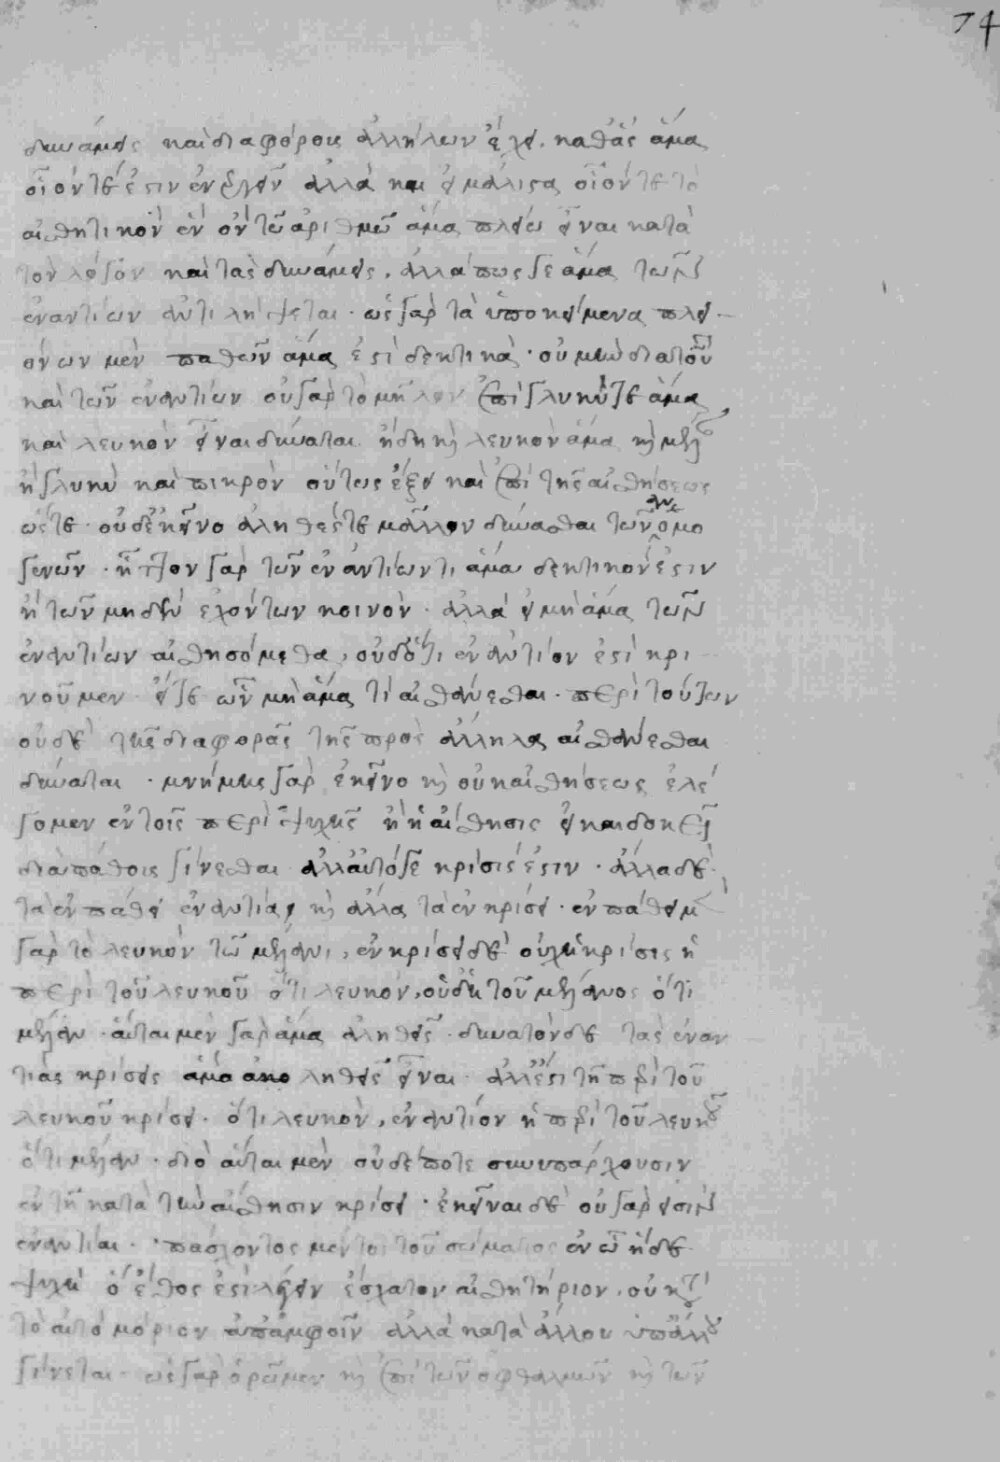 74
δυνάμεις καὶ διαφόρους ἀλλήλων ἔχει. καθ' ἃς ἅμα
οἷόντέ ἐστιν ἐνεργεῖν ἀλλὰ καὶ εἰ μάλιστα οἷόντε τὸ
αἰσθητικὸν ἓν ὂν τῶ ἀριθμῶ ἅμα πλείω εἶναι κατὰ
τὸν λόγον καὶ τὰς δυνάμεις. ἀλλὰ πῶς γε ἅμα τῶν
ἐναντίων ἀντιλήψεται. ὡς γὰρ τὰ ὑποκείμενα πλει
όνων μὲν παθῶν ἅμα ἐστὶ δεκτικὰ. οὐ μὴν
καὶ τῶν ἐναντίων οὐ γὰρ τὸ μῆλον ἐπεὶ γλυκύ γε ἅμα
καὶ λευκὸν εἶναι δύναται ἤδη κὴ λευκὸν ἅμα κὴ μέλαν
ἢ γλυκὺ καὶ πικρὸν οὕτως ἕξει καὶ ἐπὶ τῆς αἰσθήσεως
ὥστε. οὐδὲ κεῖνο ἀληθές τε μᾶλλον δύνασθαι τῶν ὁμο
γενῶν. ἧττον γὰρ τῶν ἐναντίων τι ἅμα δεκτικόν ἐστιν
ἢ τῶν μηδὲν ἐχόντων κοινὸν. ἀλλὰ εἰ μὴ ἅμα τῶν
ἐναντίων αἰσθησόμεθα, οὐδ' ὅτι ἐναντίον ἐστὶ κρι
νοῦμεν. εἴγε ὧν μὴ ἅμα τι αἰσθάνεσθαι. περὶ τούτων
οὐδὲ τῆς διαφορᾶς τῆς πρὸς ἄλληλα αἰσθάνεσθαι
δύναται. μνήμης γὰρ ἐκεῖνο κὴ οὐκ αἰσθήσεως ἐλέ
γομεν ἐν τοῖς περὶ ψυχῆς ἢ ἡ αἴσθησις εἰ καὶ δοκεῖ
διὰ πάθους γίνεσθαι ἀλλ' αὐτό γε κρίσις ἐστιν. ἄλλα δὲ
τὰ ἐν πάθει ἐναντία, κὴ ἄλλα τὰ ἐν κρίσει. ἐν πάθει μὲν
γὰρ τὸ λευκὸν τῶ μέλανι, ἐν κρίσει δὲ οὐχὶ ἡ κρίσις ἡ
περὶ τοῦ λευκοῦ ὅτι λευκόν, οὐδὲ τοῦ μέλανος ὅτι
μέλαν. αὗται μὲν γὰρ ἅμα ἀληθεῖς. δυνατὸν δὲ τὰς ἐναν
τίας κρίσεις ἅμα ἀληθεῖς εἶναι. ἀλλ' ἔστι τῆ περὶ τοῦ
λευκοῦ κρίσει. ὅτι λευκὸν, ἐναντίον ἡ περὶ τοῦ λευκοῦ
ὅτι μέλαν. διὸ αὗται μὲν οὐδέποτε συνυπάρχουσιν
ἐν τῆ κατὰ τὴν αἴσθησιν κρίσει. ἐκεῖναι δὲ οὐ γὰρ εἰσὶν
ἐναντίαι. πάσχοντος μέντοι τοῦ σώματος ἐν ᾧ ἡ δὲ
ψυχὴ ὃ ἔθος ἐστὶ λέγειν ἔσχατον αἰσθητήριον. οὐ κατὰ
τὸ αὐτὸ μόριον ἀπ' ἀμφοῖν ἀλλὰ κατὰ ἄλλου ὑπ' ἄλλου
γίνεται. ὡς γὰρ ὁρῶμεν κὴ ἐπὶ τῶν ὀφθαλμῶν κὴ τῶν